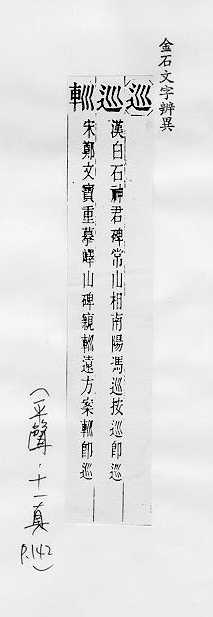 金石文字辨異
巡
巡 漢白石神君碑常山相南陽馮巡按巡即巡
䡅 宋鄭文寶重摹嶧山碑窺䡅遠方案䡅即巡
(平聲·十一真 P.142)